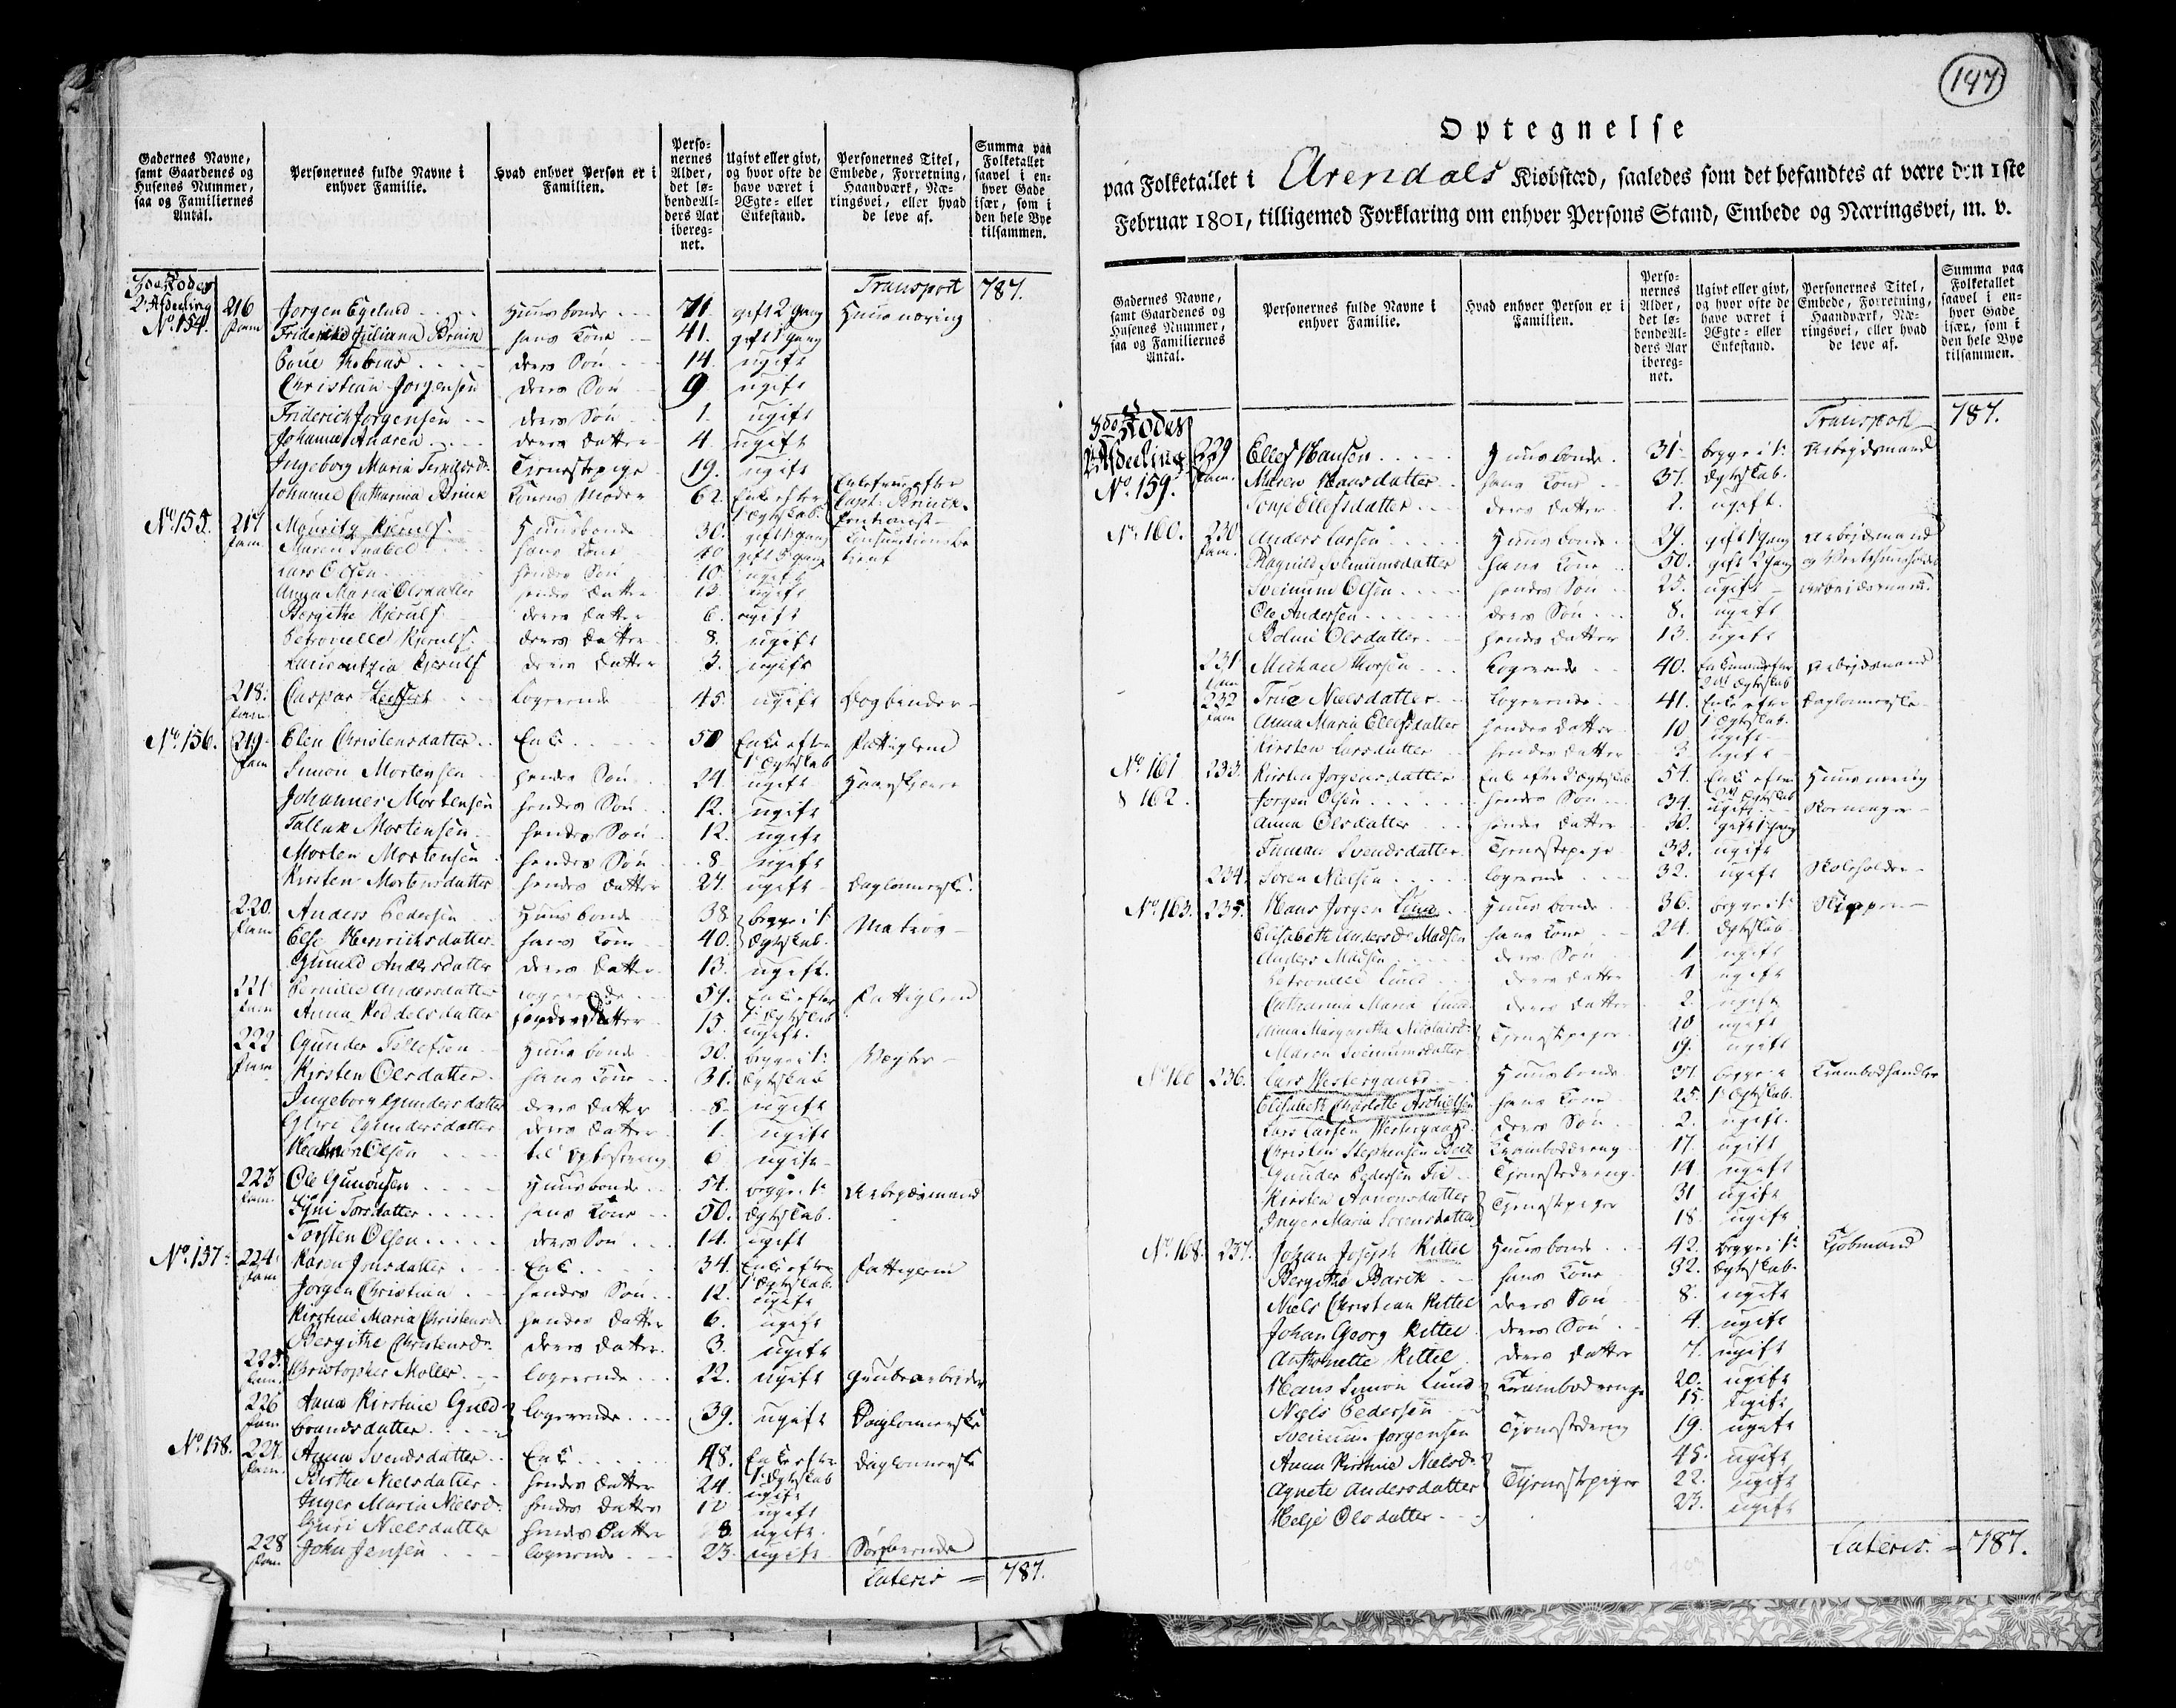 Gadernes Navne, samt Gaardenes og Husenes Nummer, saa og Familiernes Antal.
Personernes fulde Navne i enhver Familie.
Hvad enhver Person er i Familien.
Personernes Alder, det løbende Alders Aar iberegnet.
Ugivt eller givt, og hvor ofte de have været i Ægte- eller Enkestand.
Personernes Titel, Embede, Forretning, Haandværk, Næringsvei, eller hvad de leve af.
Summa paa Folketallet saavel i enhver Gade især, som i den hele Bye tilsammen.
3de Rodes 2 Afdeeling Transport 787.
No. 154. 216 Fam Jørgen Egelund Huusbonde 71. gift 2 gang Huus næring
Juliana Brinck hans Kone 41. gift 1 gang
Tobias deres Søn 14. ugift
Christian Jørgensen deres Søn 9 ugift
Friderich Jørgensen deres Søn 1. ugift
Johanna Andrea deres Datter 4. ugift
Ingeborg Maria Tieneste pige 19. ugift
Johanne Catharina Brinck Konens Moder 62 Enke efter 1 Ægteskab Enkefrue efter Capt: Brinck
No. 155. 217 Fam. Mouritz Kjerulf Huusbonde 30. gift 1 gang
Maren hans Kone 40 gift
Lars Olsen hendes Søn 10 ugift
Anna Maria Olsdatter hendes Datter 13. ugift
Bergithe Kjerulf deres Datter 6. ugift
Petronelle Kjerulf deres Datter 8. ugift
Kjerulf deres Datter 3. ugift
218. Fam Caspar Logerende 45. ugift Bogbinder
No. 156. 219 Fam Elen Christensdatter Enke 50 Enke efter 1 Ægteskab Fattiglem
Simon Mortensen hendes Søn 24. ugift
Johannes Mortensen hendes Søn 12. ugift
Tallak Mortensen hendes Søn 12. ugift
Morten Mortensen hendes Søn 8 ugift
Kirsten Mortensdatter hendes Datter 27. ugift Daglønnerske
220. Fam Anders Pedersen Huusbonde 38 begge i 1: Matros
Else Henrichsdatter hans Kone 40. Ægteskab.
Gunild Andersdatter deres Datter 13. ugift.
221 Fam Pernille Andersdatter logerende 59. Enke efter 1 Ægteskab Fattiglem
Anna hendes Datter 15. ugift.
222 Fam Gunder Tellefsen Huusbonde 30. begge i 1: Vægter
Kirsten Olsdatter hans Kone 31. Ægteskab
Ingeborg Gundersdatter deres Datter 8 ugift
Gundersdatter deres Datter 1. ugift
Olsen til Opfostring 6 ugift
223 Fam. Ole Gunuvsen Huusbonde 54. begge i 1: Arbejdsmand
Torsdatter hans Kone 50. Ægteskab.
Torsten Olsen deres Søn 14. ugift
No. 157. 224 Fam Karen Jensdatter Enke 34. Enke efter 1 Ægteskab. Fattiglem
Jørgen Christian hendes Søn 12. ugift
Kirstine Maria Christensd: hendes Datter 6. ugift
Bergithe Christensd: deres Datter 3. ugift
225. Fam. Christopher Møller logerende 22. ugift
226 Fam Anna Kirstine Guldbrandsdatter logerende 39. ugift Daglønnerske
No. 158. 227. Fam. Anna Svendsdatter Enke 48. Enke efter 1 Ægteskab Daglønnerske
Birthe Nielsdatter hendes Datter 24. ugift
Inger Maria Nielsd: hendes Datter ugift
Guri Nielsdatter hendes Datter 8. ugift
228 Fam. John Jensen logerende 23. ugift Søefarende
Lateris = 787.
147
Optegnelse
paa Folketallet i Arendals Kiøbstæd, saaledes som det befandtes at være den 1ste
Februar 1801, tilligemed Forklaring om enhver Persons Stand, Embede og Næringsvei, m. v.
Gadernes Navne, samt Gaardenes og Husenes Nummer, saa og Familiernes Antal.
Personernes fulde Navne i enhver Familie.
Hvad enhver Person er i Familien.
Personernes Alder, det løbende Alders Aar iberegnet.
Ugivt eller givt, og hvor ofte de have været i Ægte- eller Enkestand.
Personernes Titel, Embede, Forretning, Haandværk, Næringsvei, eller hvad de leve af.
Summa paa Folketallet saavel i enhver Gade især, som i den hele Bye tilsammen.
3de Rodes 2 Afdeeling Transport 787.
No. 159. 229 Fam. Ellef Hansen Huusbonde 31. begge i 1: Arbejdsmand
Maren Hansdatter hans Kone 37. Ægteskab.
Ellefsdatter deres Datter 2. ugift.
No. 160. 230 Fam. Anders Larsen Huusbonde 29. gift 1 gang Arbejdsmand
Ragnild hans Kone 50. gift 2 gang
Olsen hendes Søn 25. ugift Arbeidsmand.
Ole Andersen deres Søn 8. ugift
Olsdatter hendes Datter 13. ugift
231 Fam Michael Logerende 40. Arbejdsmand
232 Fam True Nielsdatter Logerende 41. Enke efter 1 Ægteskab. Daglønnerske
Anna Maria Ellefsdatter hendes Datter 10 ugift
Kirsten Larsdatter hendes Datter 3 ugift
No. 161 & 162. 233. Kirsten Jørgensdatter Enke efter Ægteskab 54. Enke efter Huus næring
Jørgen Olsen hendes Søn 34. ugift
Anna Olsdatter hendes Datter 30. gift 1 gang
Svendsdatter Tieneste pige 33. ugift
234. Søren Nielsen logerende 32. ugift Skoleholder
No. 163. 235. Hans Jørgen Lund Huusbonde 36. begge i 1: Skipper
Elisabeth Anders Dr. Madsen hans Kone 24. Ægteskab
Anders Madsen deres Søn 1 ugift
Petronelle Lund deres Datter 4 ugift
Catharina Maria Lund deres Datter 2. ugift
Anna Margaretha Nicolaisd: Tjenestepiger 20 ugift
Maren 19. ugift
236. Lars Westergaard Huusbonde 37 begge i Krambodhandler
Elisabeth Charlotte hans Kone 25. 1 Ægteskab.
Lars Larsen Westergaard deres Søn 2. ugift.
Christen Stephensen 17. ugift
Gunder Pedersen Tjenestedreng 14. ugift
Kirsten Aanonsdatter Tjenestepiger 31 ugift
Inger Maria Sørensdatter 18. ugift
No. 168. 237. Johan Joseph Kittel Huusbonde 42. begge i 1: Kjøbmand
Bergithe hans Kone 32. Ægteskab.
Niels Christian Kittel deres Søn 8. ugift
Johan Georg Kittel deres Søn 4. ugift
Anthonette Kittel deres Datter 7. ugift
Hans Simon Lund Krambodrenge 20. ugift
Niels Pedersen 15. ugift
Jørgensen Tjenestedreng 19. ugift
Anna Kirstine Nielsd: 45. ugift
Agnete Andersdatter Tjenestepiger 22. ugift
Helje Olsdatter 23. ugift
Lateris. = 787.